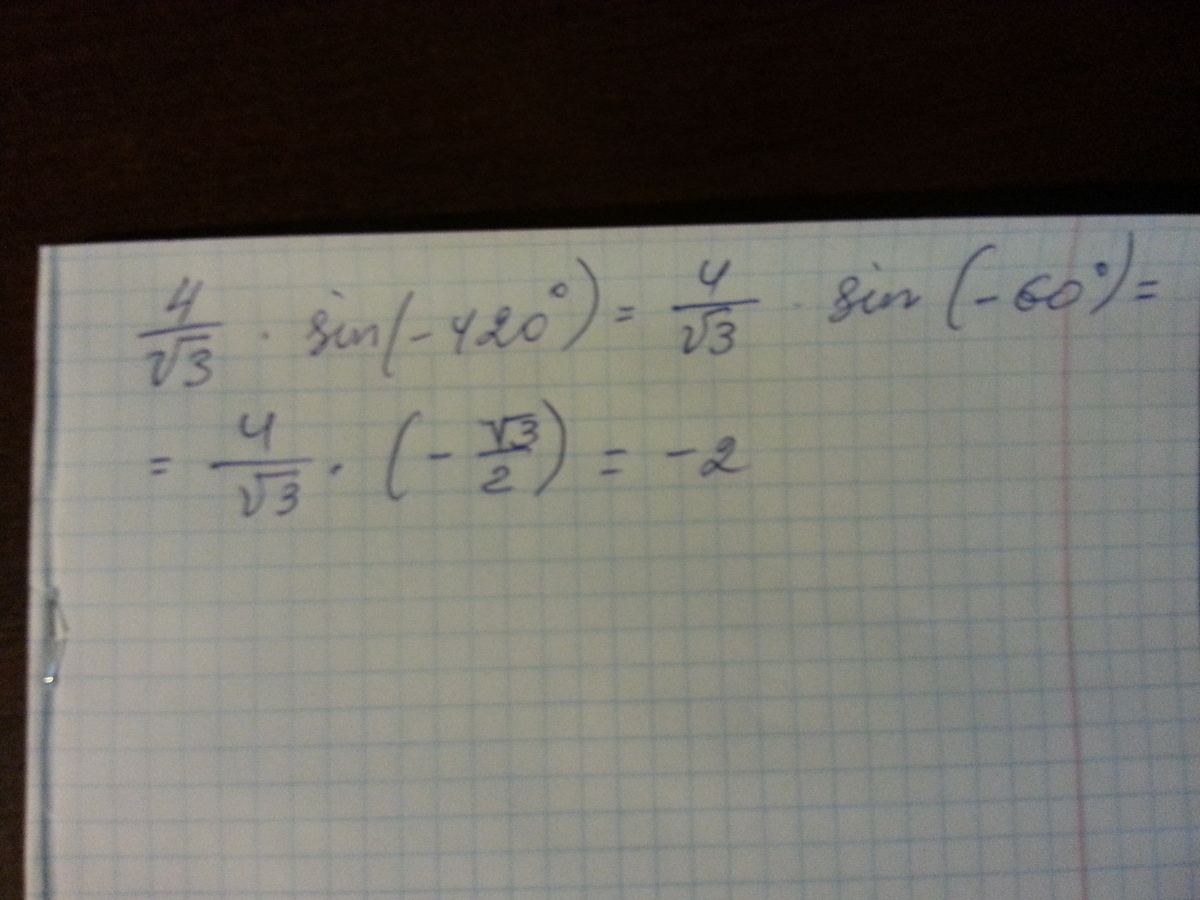 4/√3 · sin(-420°) = 4/√3 · sin(-60°) =
= 4/√3 · (-√3/2) = -2